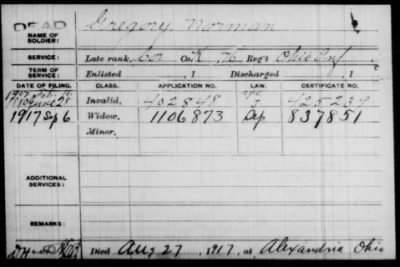 DEAD
NAME OF SOLDIER: Gregory Norman
SERVICE: Late rank, Cor Co. K Reg't Ohio Inf
TERM OF SERVICE: Enlisted , 1 Discharged , 1
DATE OF FILING. CLASS. APPLICATION NO. LAW. CERTIFICATE NO.
Invalid, 402848 425239
1917 Sep 6 Widow, 1106873 837851
Minor,
ADDITIONAL SERVICES:
REMARKS:
Died Aug 27, 1917, at Alexandria Ohio